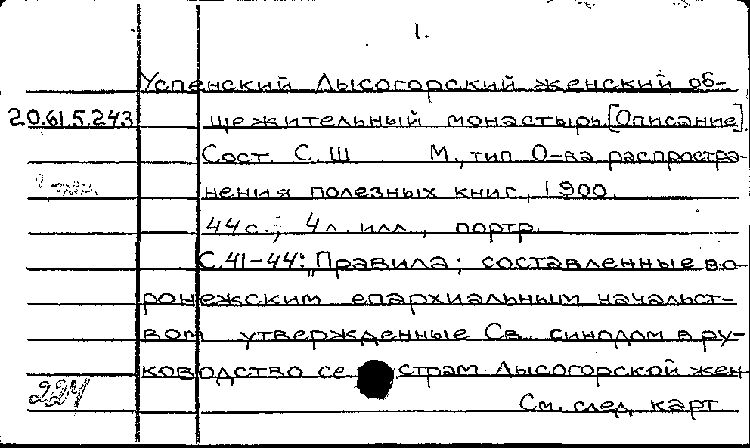 1.
Успенский Лысогорский женский об-
20.61.5.243 щежительный монастырь. [Описание].
Сост. С. Ш М., тип. О-ва распростра-
нения полезных книг, 1900.
44 с.; 4 л. илл., портр.
С. 41-44: "Правила; составленные во-
ронежским епархиальным начальст-
вом утвержденные Св. синодом в ру-
ководство се страм Лысогорской жен
224 См. след. карт